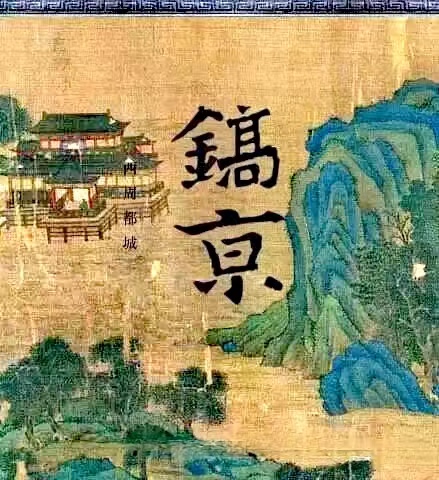 鎬亰
西周都城